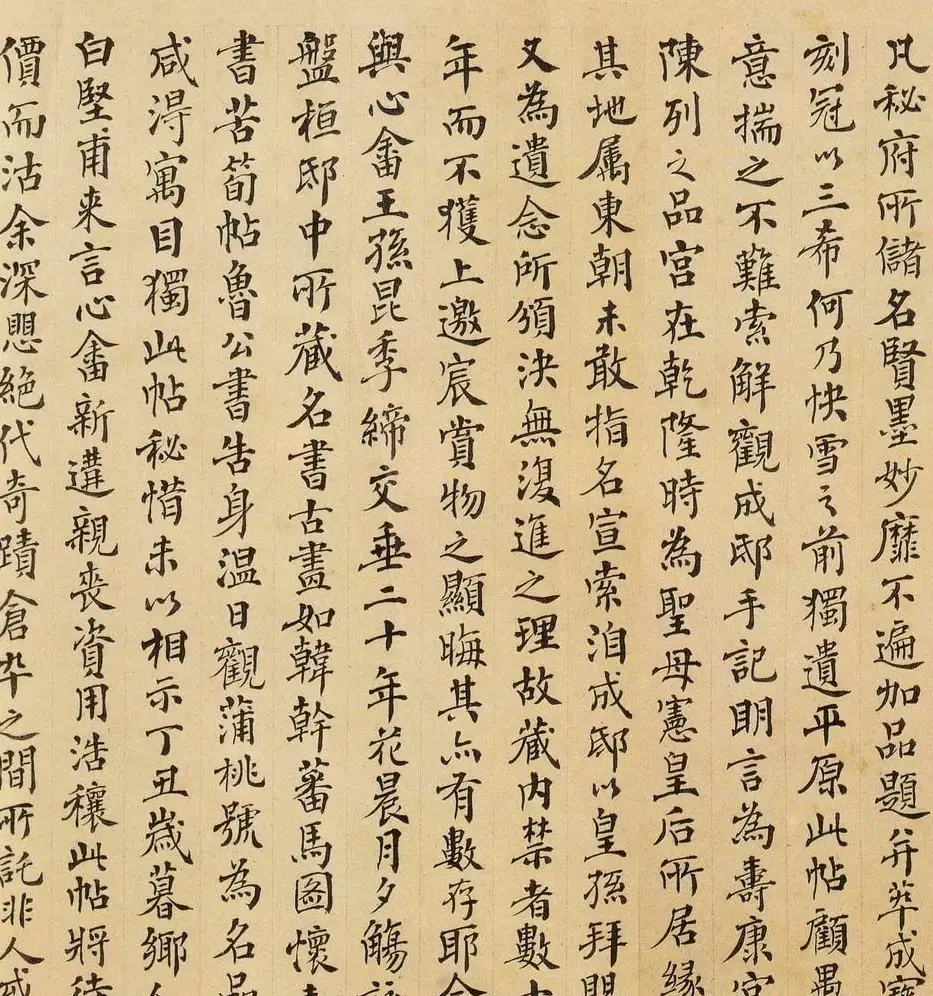 凡秘府所儲名賢墨妙靡不遍加品題并萃成寶
刻冠以三希何乃快雪之前獨遺平原此帖顧愚
意揣之不難索解觀成邸手記明言為壽康宮
陳列之品宮在乾隆時為聖母憲皇后所居緣
其地屬東朝未敢指名宣索洎成邸以皇孫拜
又為遺念所頒決無復進之理故藏內禁者數
年而不獲上邀宸賞物之顯晦其亦有數存耶余
與心畬王孫昆季締交垂二十年花晨月夕觴詠
盤桓邸中所藏名書古畫如韓幹蕃馬圖懷素
書苦筍帖魯公書告身温日觀蒲桃號為名品
咸得寓目獨此帖秘惜未以相示丁丑歲暮鄉
白堅甫来言心畬新遘親喪資用浩穰此帖將待
價而沽余深愳絕代奇蹟倉卒之間所託非人或